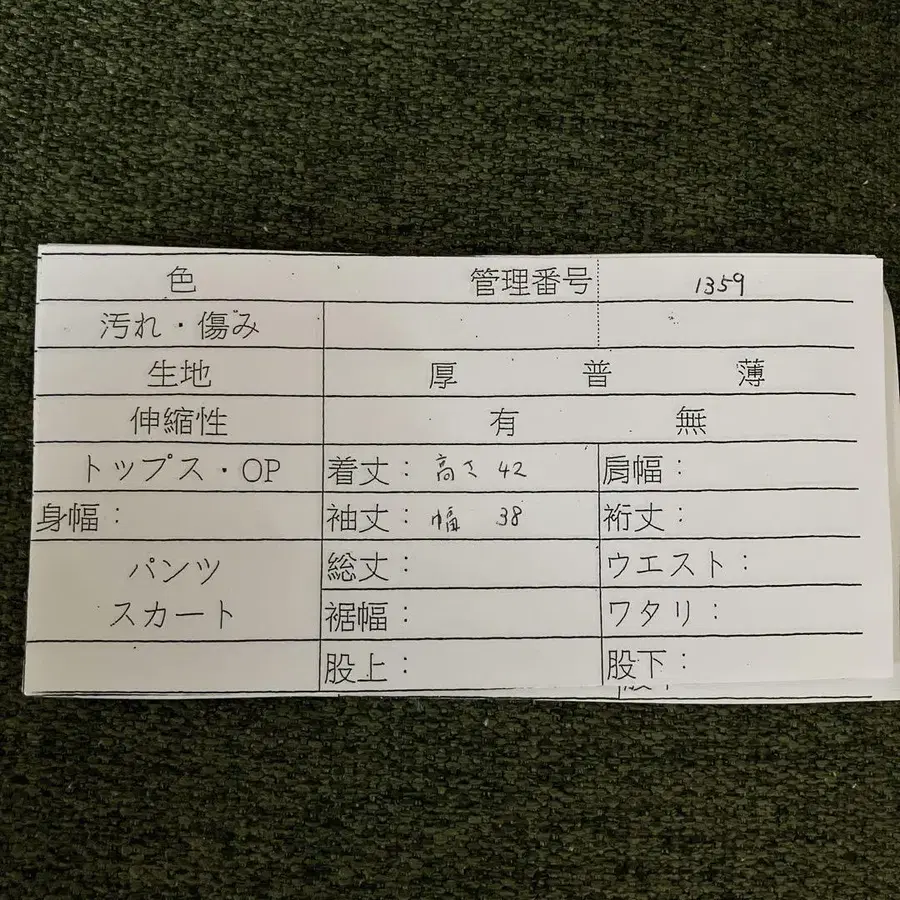 色 管理番号 1359
汚れ・傷み
生地 厚 普 薄
伸縮性 有 無
トップス・OP 着丈： 高さ 42 肩幅：
身幅： 袖丈： 幅 38 裄丈：
パンツ 総丈： ウエスト：
スカート 裾幅： ワタリ：
股上： 股下：